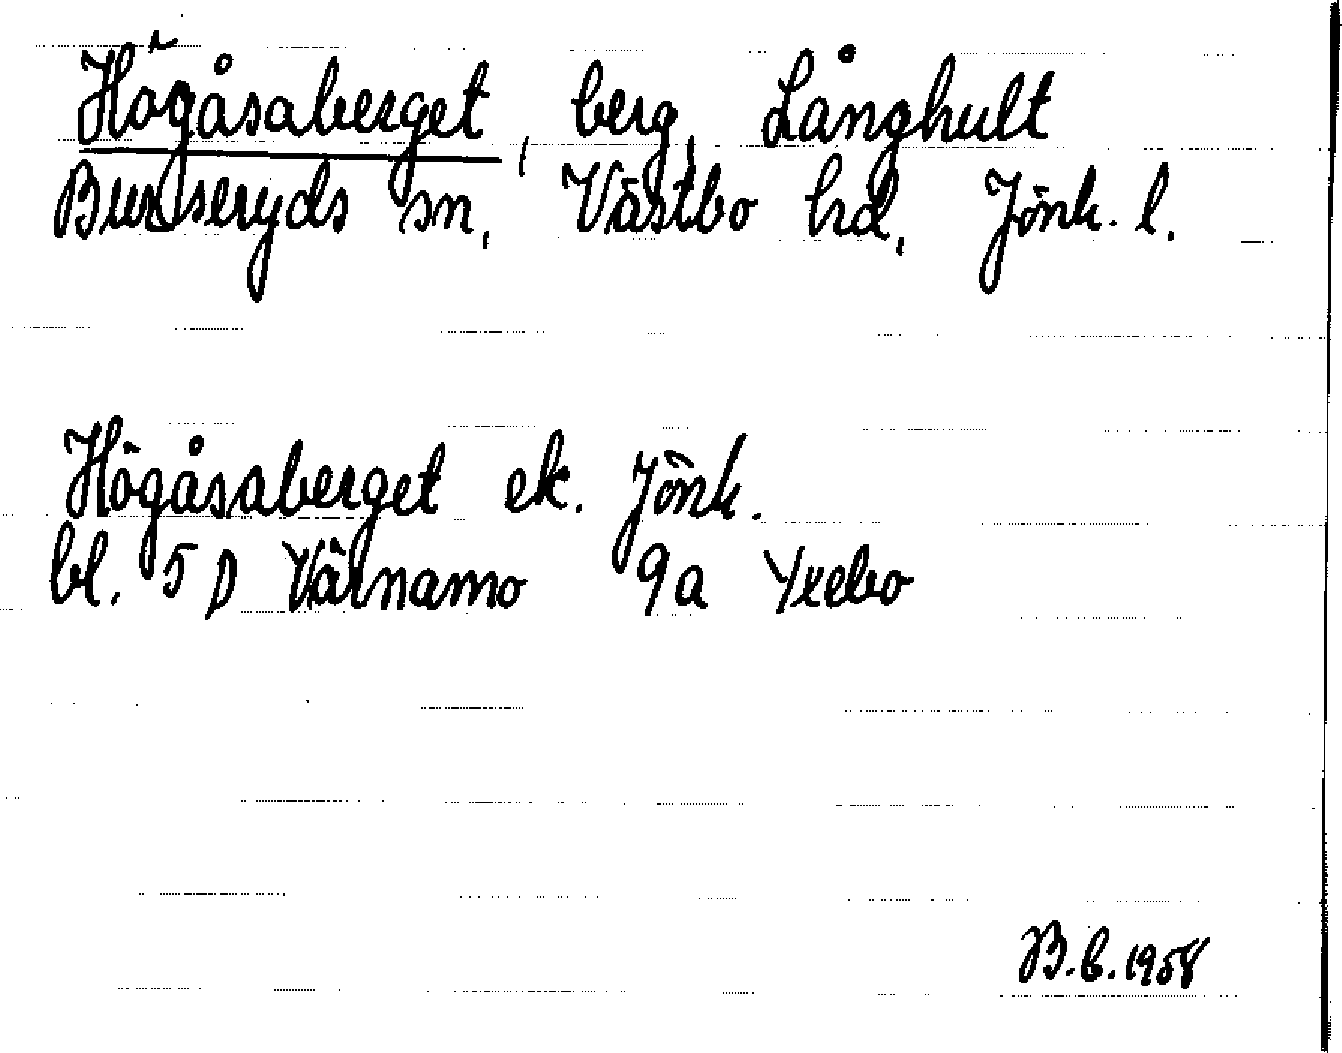 Högåsaberget, berg, Långhult
Burseryds sn, Västbo hd, Jönk. l.
Högåsaberget ek. Jönk.
bl. 5 D Värnamo 9a Yxebo
B.C. 1958